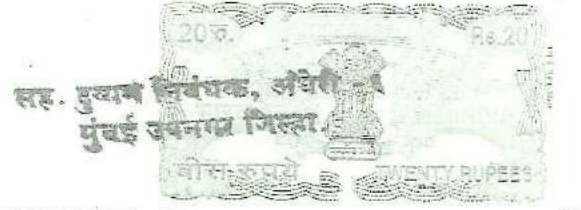 20 रु. Rs.20
सह. दुय्यम निबंधक, अंधेरी
मुंबई उपनगर जिल्हा.
बीस रुपये TWENTY RUPEES